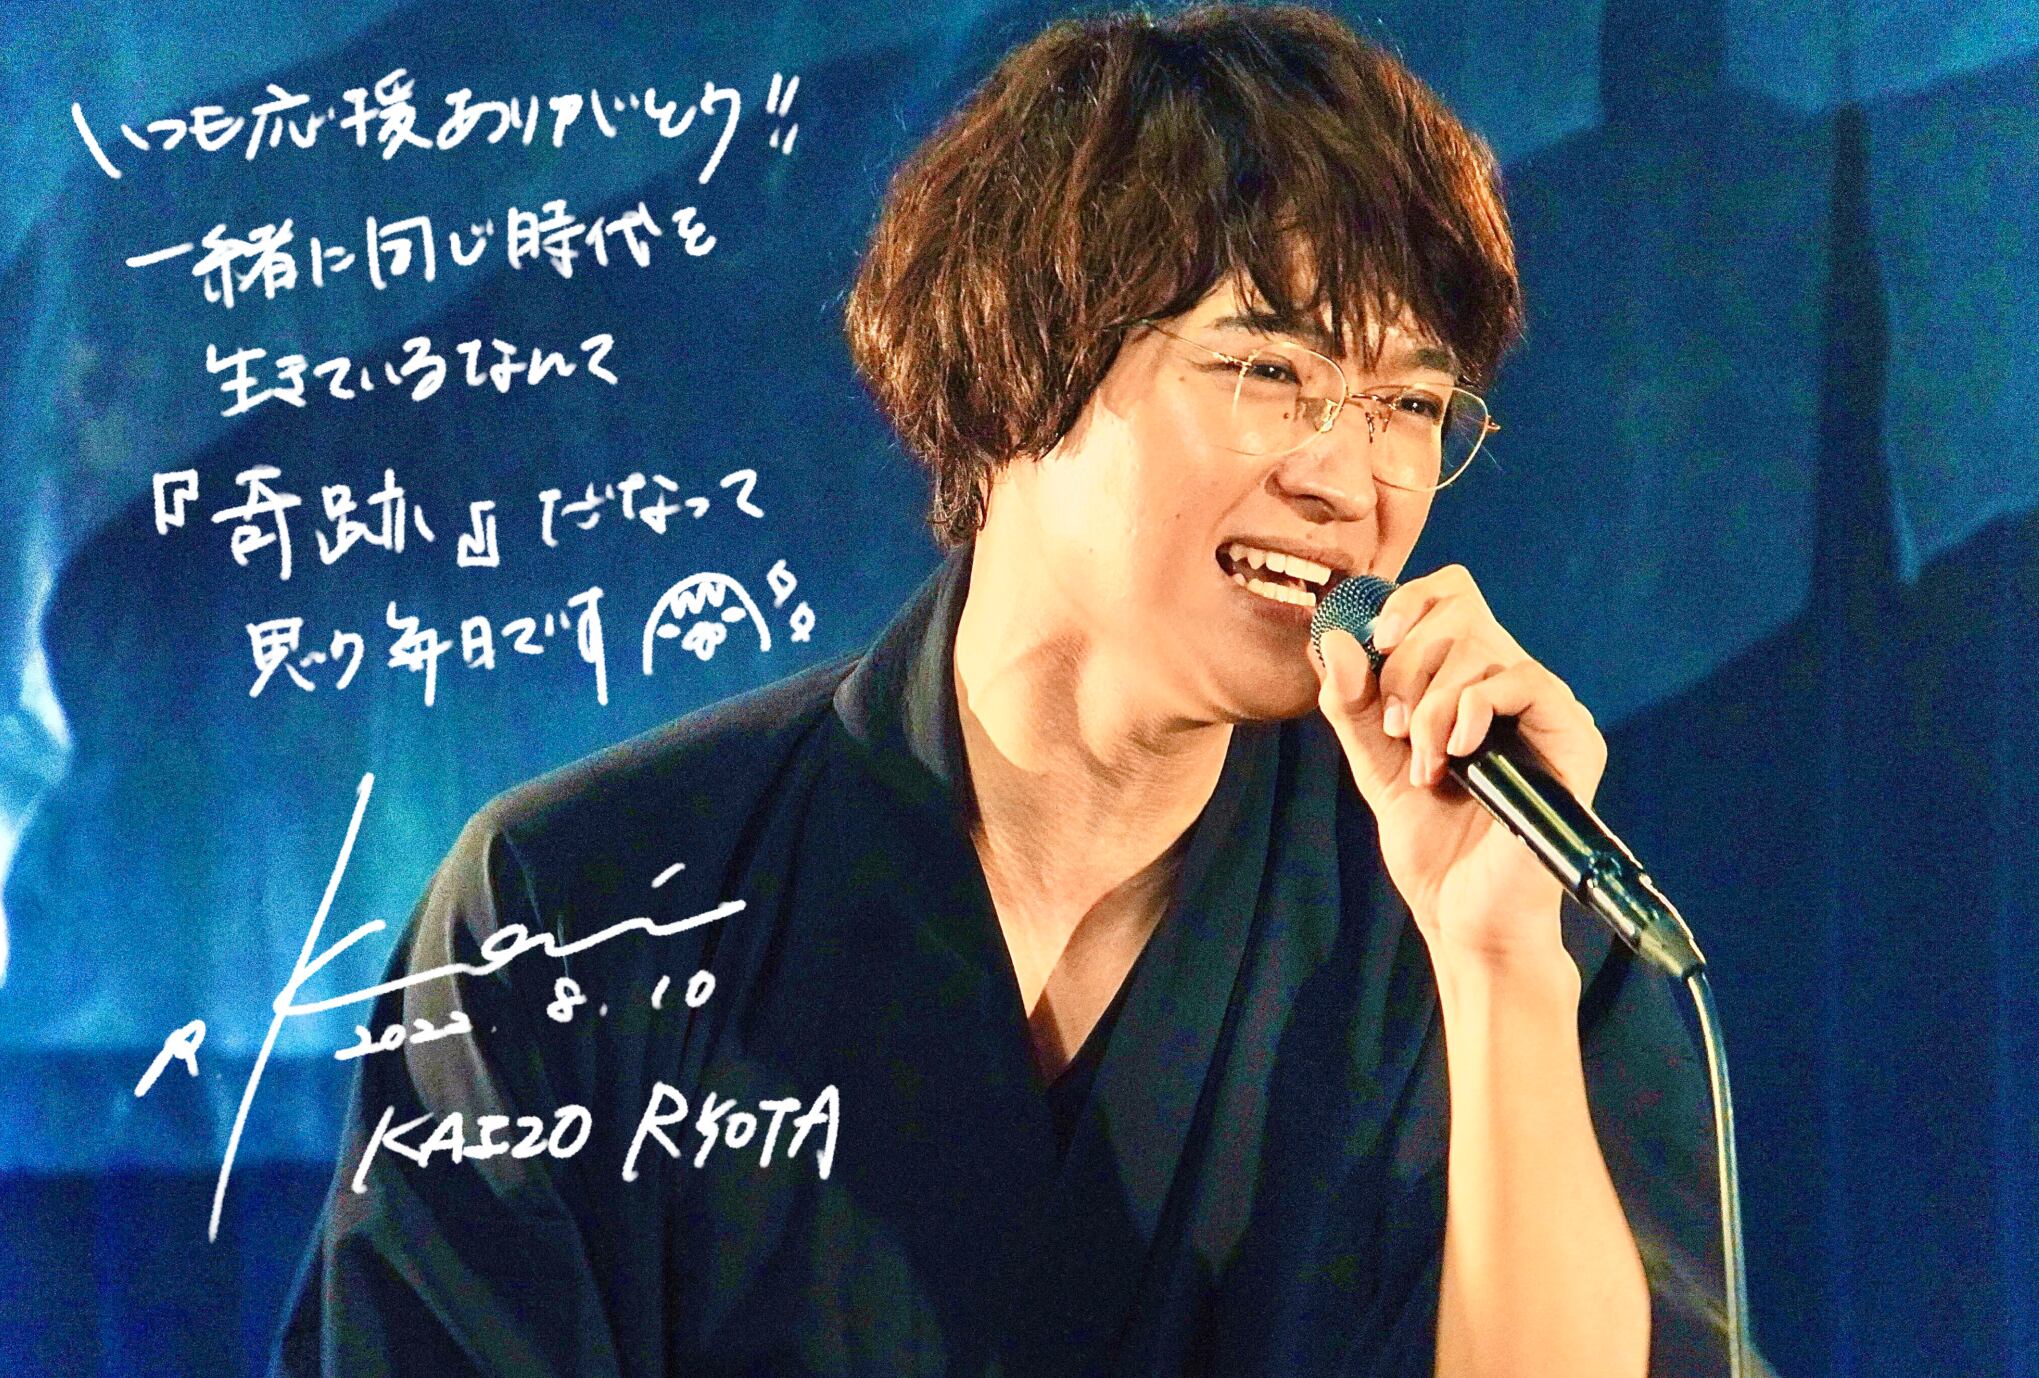 いつも応援ありがとう!!
一緒に同じ時代を
生きているなんて
『奇跡』だなって
思う毎日です
R Kai
2022. 8. 10
KAIZO RYOTA